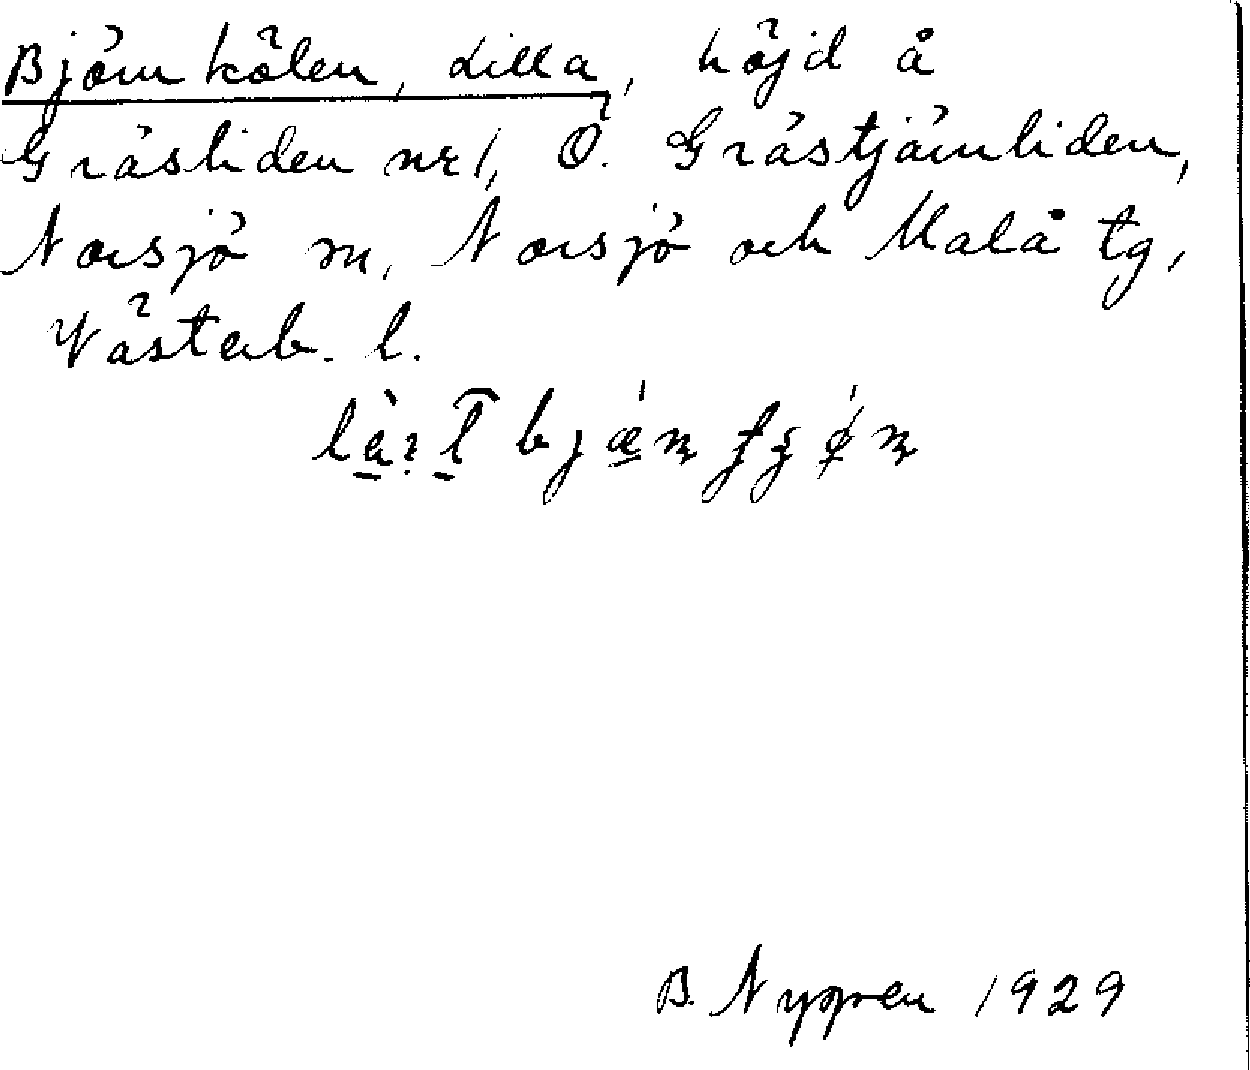 Björnkölen, Lilla, höjd å
Gräsliden nr 1, Ö. Grästjärnliden,
Norsjö sn, Norsjö och Malå tg,
Västerb. l.
B. Nygren 1929